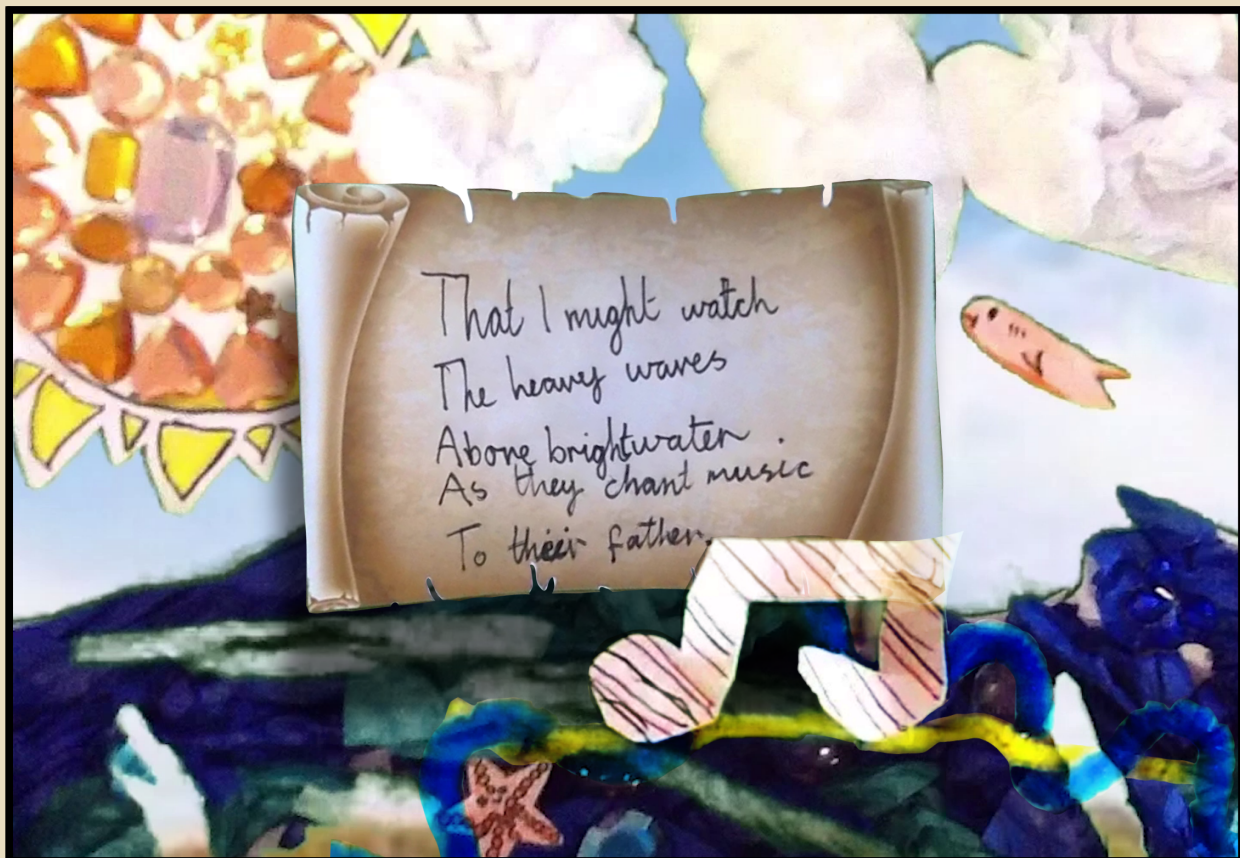 That I might watch
The heavy waves
Above brightwater.
As they chant music
To their father.